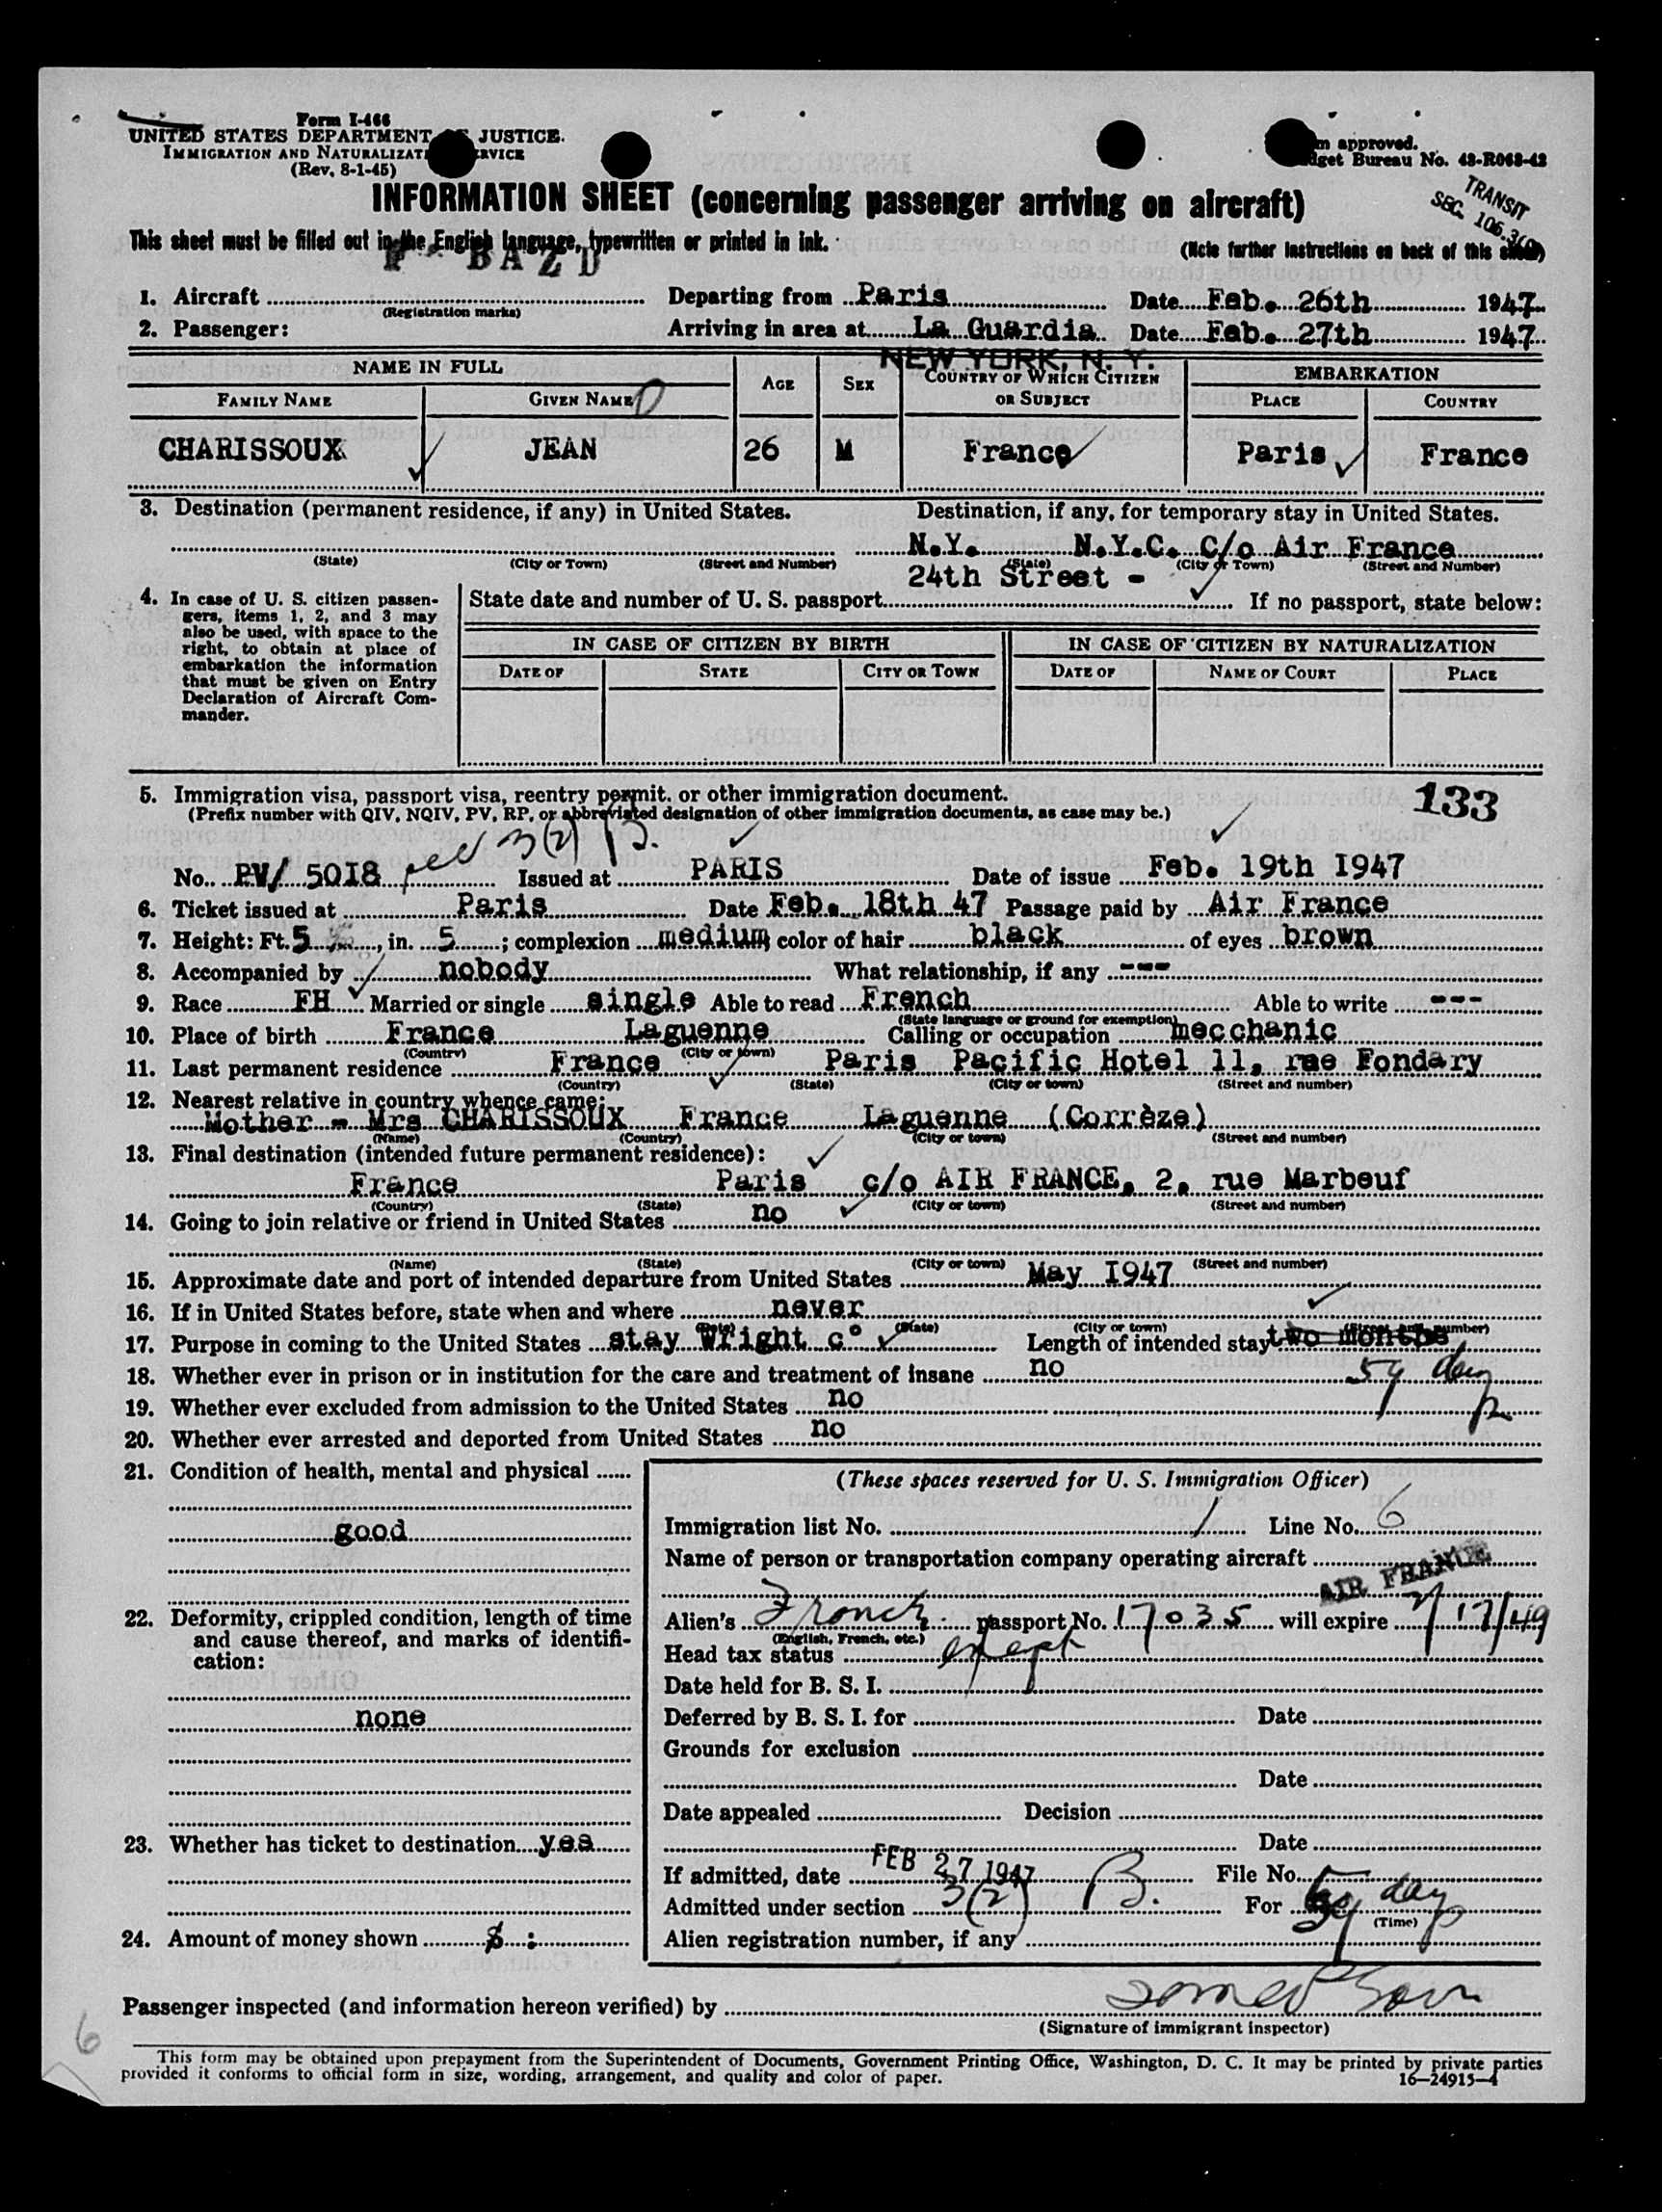 Form I-466
UNITED STATES DEPARTMENT JUSTICE.
IMMIGRATION AND NATURALIZATI RVICE
(Rev. 8-1-45)
m approved.
dget Bureau No. 43-R068-42
TRANSIT
SEC. 106.3
INFORMATION SHEET (concerning passenger arriving on aircraft)
This sheet must be filled out in the English language, typewritten or printed in ink.
(Note further instructions on back of this sheet)
F - BAZD
1. Aircraft Departing from Paris Date Feb. 26th 1947
(Registration marks)
2. Passenger: Arriving in area at La Guardia Date Feb. 27th 1947
NEW YORK, N. Y.
NAME IN FULL AGE SEX COUNTRY OF WHICH CITIZEN OR SUBJECT EMBARKATION
FAMILY NAME GIVEN NAME PLACE COUNTRY
CHARISSOUX JEAN 26 M France Paris France
3. Destination (permanent residence, if any) in United States. Destination, if any, for temporary stay in United States.
N.Y. N.Y.C. C/o Air France
(State) (City or Town) (Street and Number) (State) (City or Town) (Street and Number)
24th Street -
4. In case of U. S. citizen passen-
gers, items 1, 2, and 3 may
also be used, with space to the
right, to obtain at place of
embarkation the information
that must be given on Entry
Declaration of Aircraft Com-
mander.
State date and number of U. S. passport If no passport, state below:
IN CASE OF CITIZEN BY BIRTH IN CASE OF CITIZEN BY NATURALIZATION
DATE OF STATE CITY OR TOWN DATE OF NAME OF COURT PLACE
5. Immigration visa, passport visa, reentry permit, or other immigration document.
133
(Prefix number with QIV, NQIV, PV, RP, or abbreviated designation of other immigration documents, as case may be.)
3(2) B.
No. PV/ 50I8 Issued at PARIS Date of issue Feb. 19th I947
6. Ticket issued at Paris Date Feb. 18th 47 Passage paid by Air France
7. Height: Ft. 5, in. 5; complexion medium, color of hair black of eyes brown
8. Accompanied by nobody What relationship, if any ---
9. Race FH Married or single single Able to read French Able to write ---
(State language or ground for exemption)
10. Place of birth France Laguenne Calling or occupation mecchanic
(Country) (City or town)
11. Last permanent residence France Paris Pacific Hotel 11, rue Fondary
(Country) (State) (City or town) (Street and number)
12. Nearest relative in country whence came:
Mother - Mrs CHARISSOUX France Laguenne (Corrèze)
(Name) (Country) (City or town) (Street and number)
13. Final destination (intended future permanent residence):
France Paris c/o AIR FRANCE, 2, rue Marbeuf
(Country) (State) (City or town) (Street and number)
14. Going to join relative or friend in United States no
(Name) (State) (City or town) (Street and number)
15. Approximate date and port of intended departure from United States May I947
16. If in United States before, state when and where never
(Date) (State) (City or town) (Street and number)
17. Purpose in coming to the United States stay Wright c° Length of intended stay two months
59 days
18. Whether ever in prison or in institution for the care and treatment of insane no
19. Whether ever excluded from admission to the United States no
20. Whether ever arrested and deported from United States no
21. Condition of health, mental and physical
good
22. Deformity, crippled condition, length of time
and cause thereof, and marks of identifi-
cation:
none
23. Whether has ticket to destination yes
24. Amount of money shown $ :
(These spaces reserved for U. S. Immigration Officer)
Immigration list No. 1 Line No. 6
Name of person or transportation company operating aircraft
AIR FRANCE
Alien's French passport No. 17035 will expire 2/17/49
(English, French, etc.)
Head tax status exempt
Date held for B. S. I.
Deferred by B. S. I. for Date
Grounds for exclusion
Date
Date appealed Decision
Date
If admitted, date FEB 27 1947 File No.
Admitted under section 3(2) B. For 59 days
(Time)
Alien registration number, if any
Passenger inspected (and information hereon verified) by
(Signature of immigrant inspector)
6
This form may be obtained upon prepayment from the Superintendent of Documents, Government Printing Office, Washington, D. C. It may be printed by private parties
provided it conforms to official form in size, wording, arrangement, and quality and color of paper.
16—24915-4